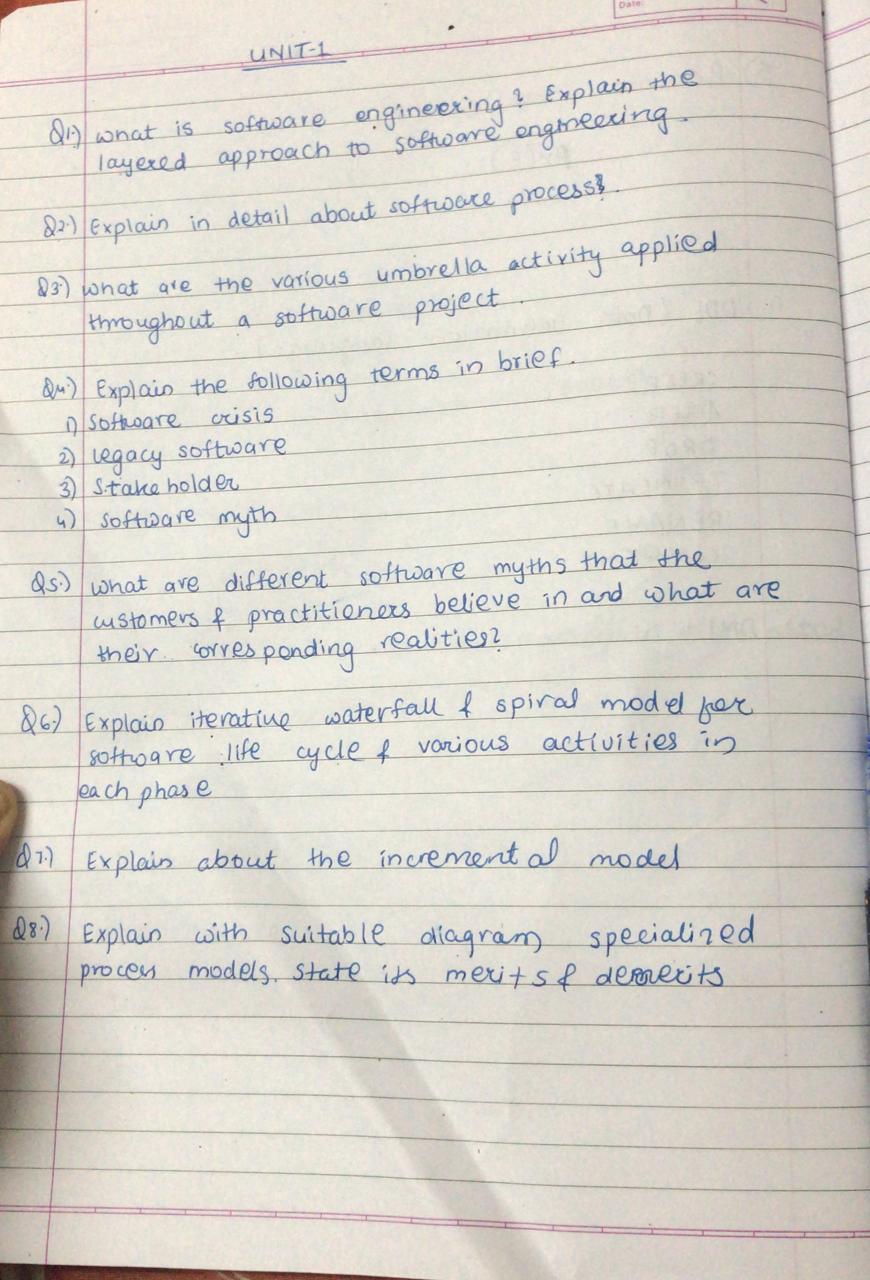 Date
UNIT-1
Q1.) what is software engineering? Explain the
layered approach to software engineering.
Q2.) Explain in detail about software process.
Q3.) what are the various umbrella activity applied
throughout a software project.
Q4.) Explain the following terms in brief.
1) Software crisis
2) legacy software
3) Stakeholder
4) software myth
Q5.) what are different software myths that the
customers & practitioners believe in and what are
their corresponding realities?
Q6.) Explain iterative waterfall & spiral model for
software life cycle & various activities in
each phase
Q7.) Explain about the incremental model
Q8.) Explain with suitable diagram specialized
process models. state its merits & demerits